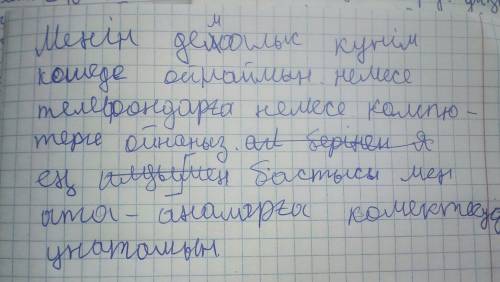 Менін демоолык күнім
кошеде ойнаймын немесе
телефондарға немесе компю-
терге ойнаныз. ал берінен я
ең алдымен бастысы мен
ата-анамарға комектесуд
унатамын